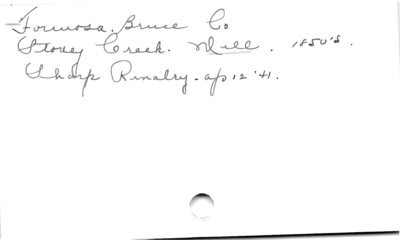 Formosa, Bruce Co
Stoney Creek. Mill. 1850's.
Sharp Rivalry - ap 12 '41.